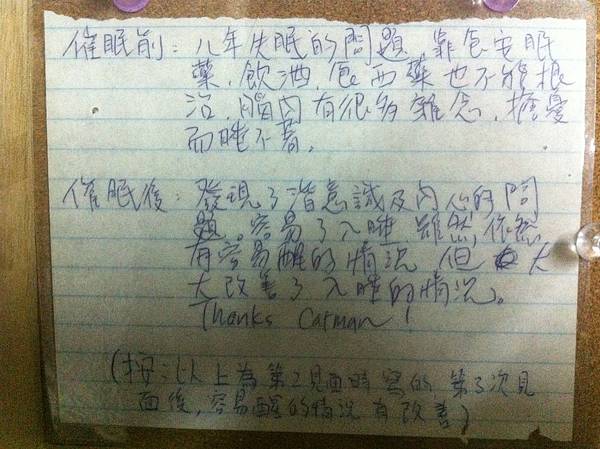 催眠前：八年失眠的問題，靠食安眠
藥，飲酒，食西藥也不能根
治，腦內有很多雜念，擔憂
而睡不着。
催眠後：發現了潛意識及內心的問
題。容易了入睡，雖然，依然
有容易醒的情況，但大
大改善了入睡的情況。
Thanks Carman!
(按：以上為第2次見面時寫的，第3次見
面後，容易醒的情況有改善)